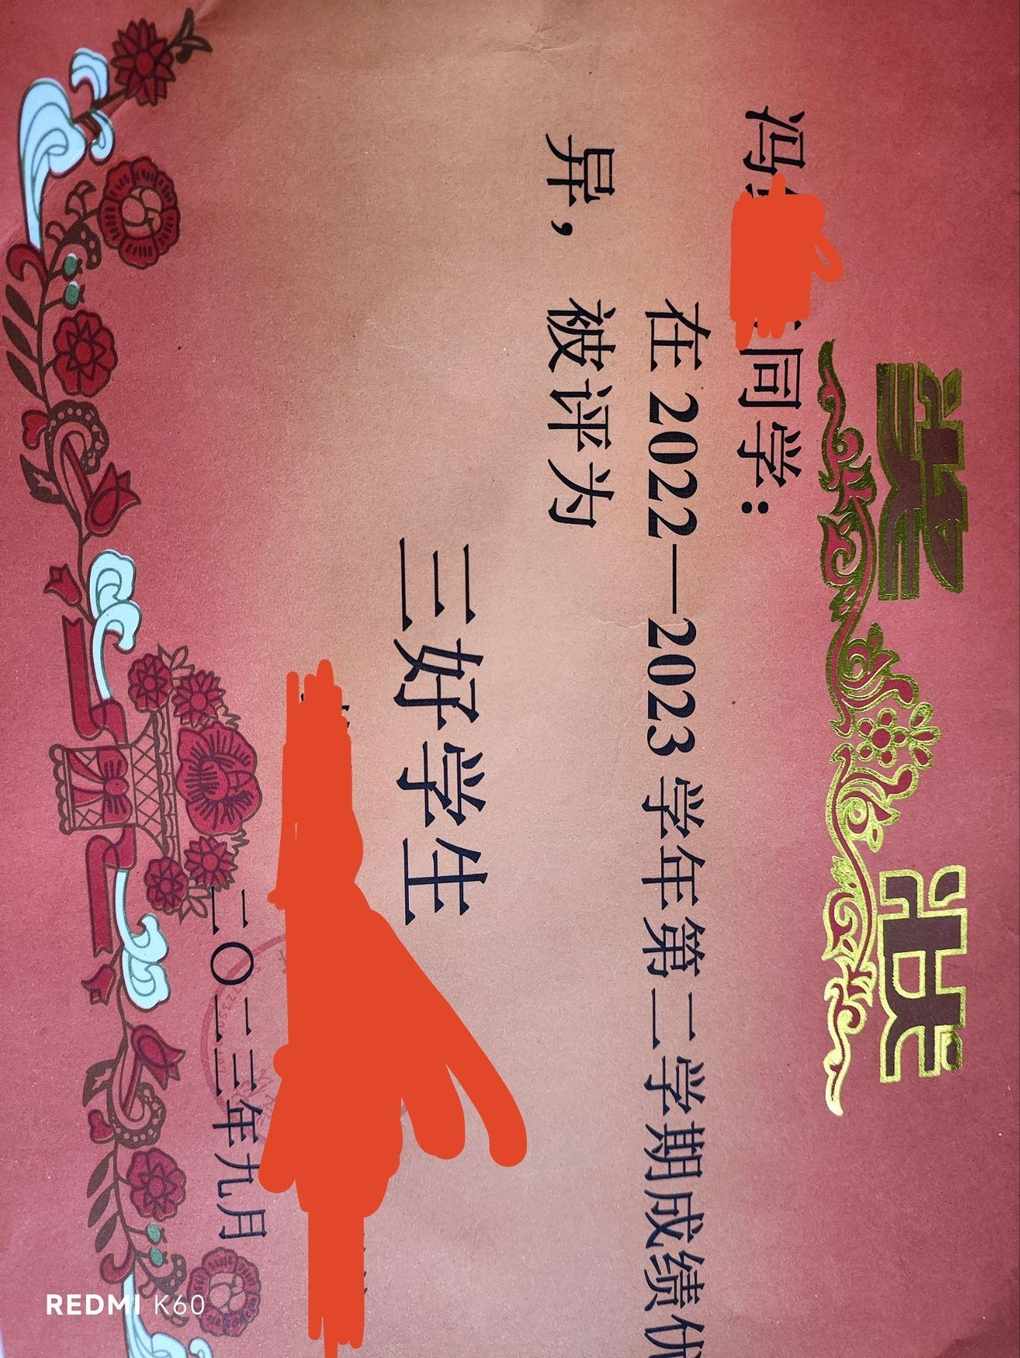 奖状
冯 同学：
在2022—2023学年第二学期成绩优
异，被评为
三好学生
二〇二三年九月
REDMI K60